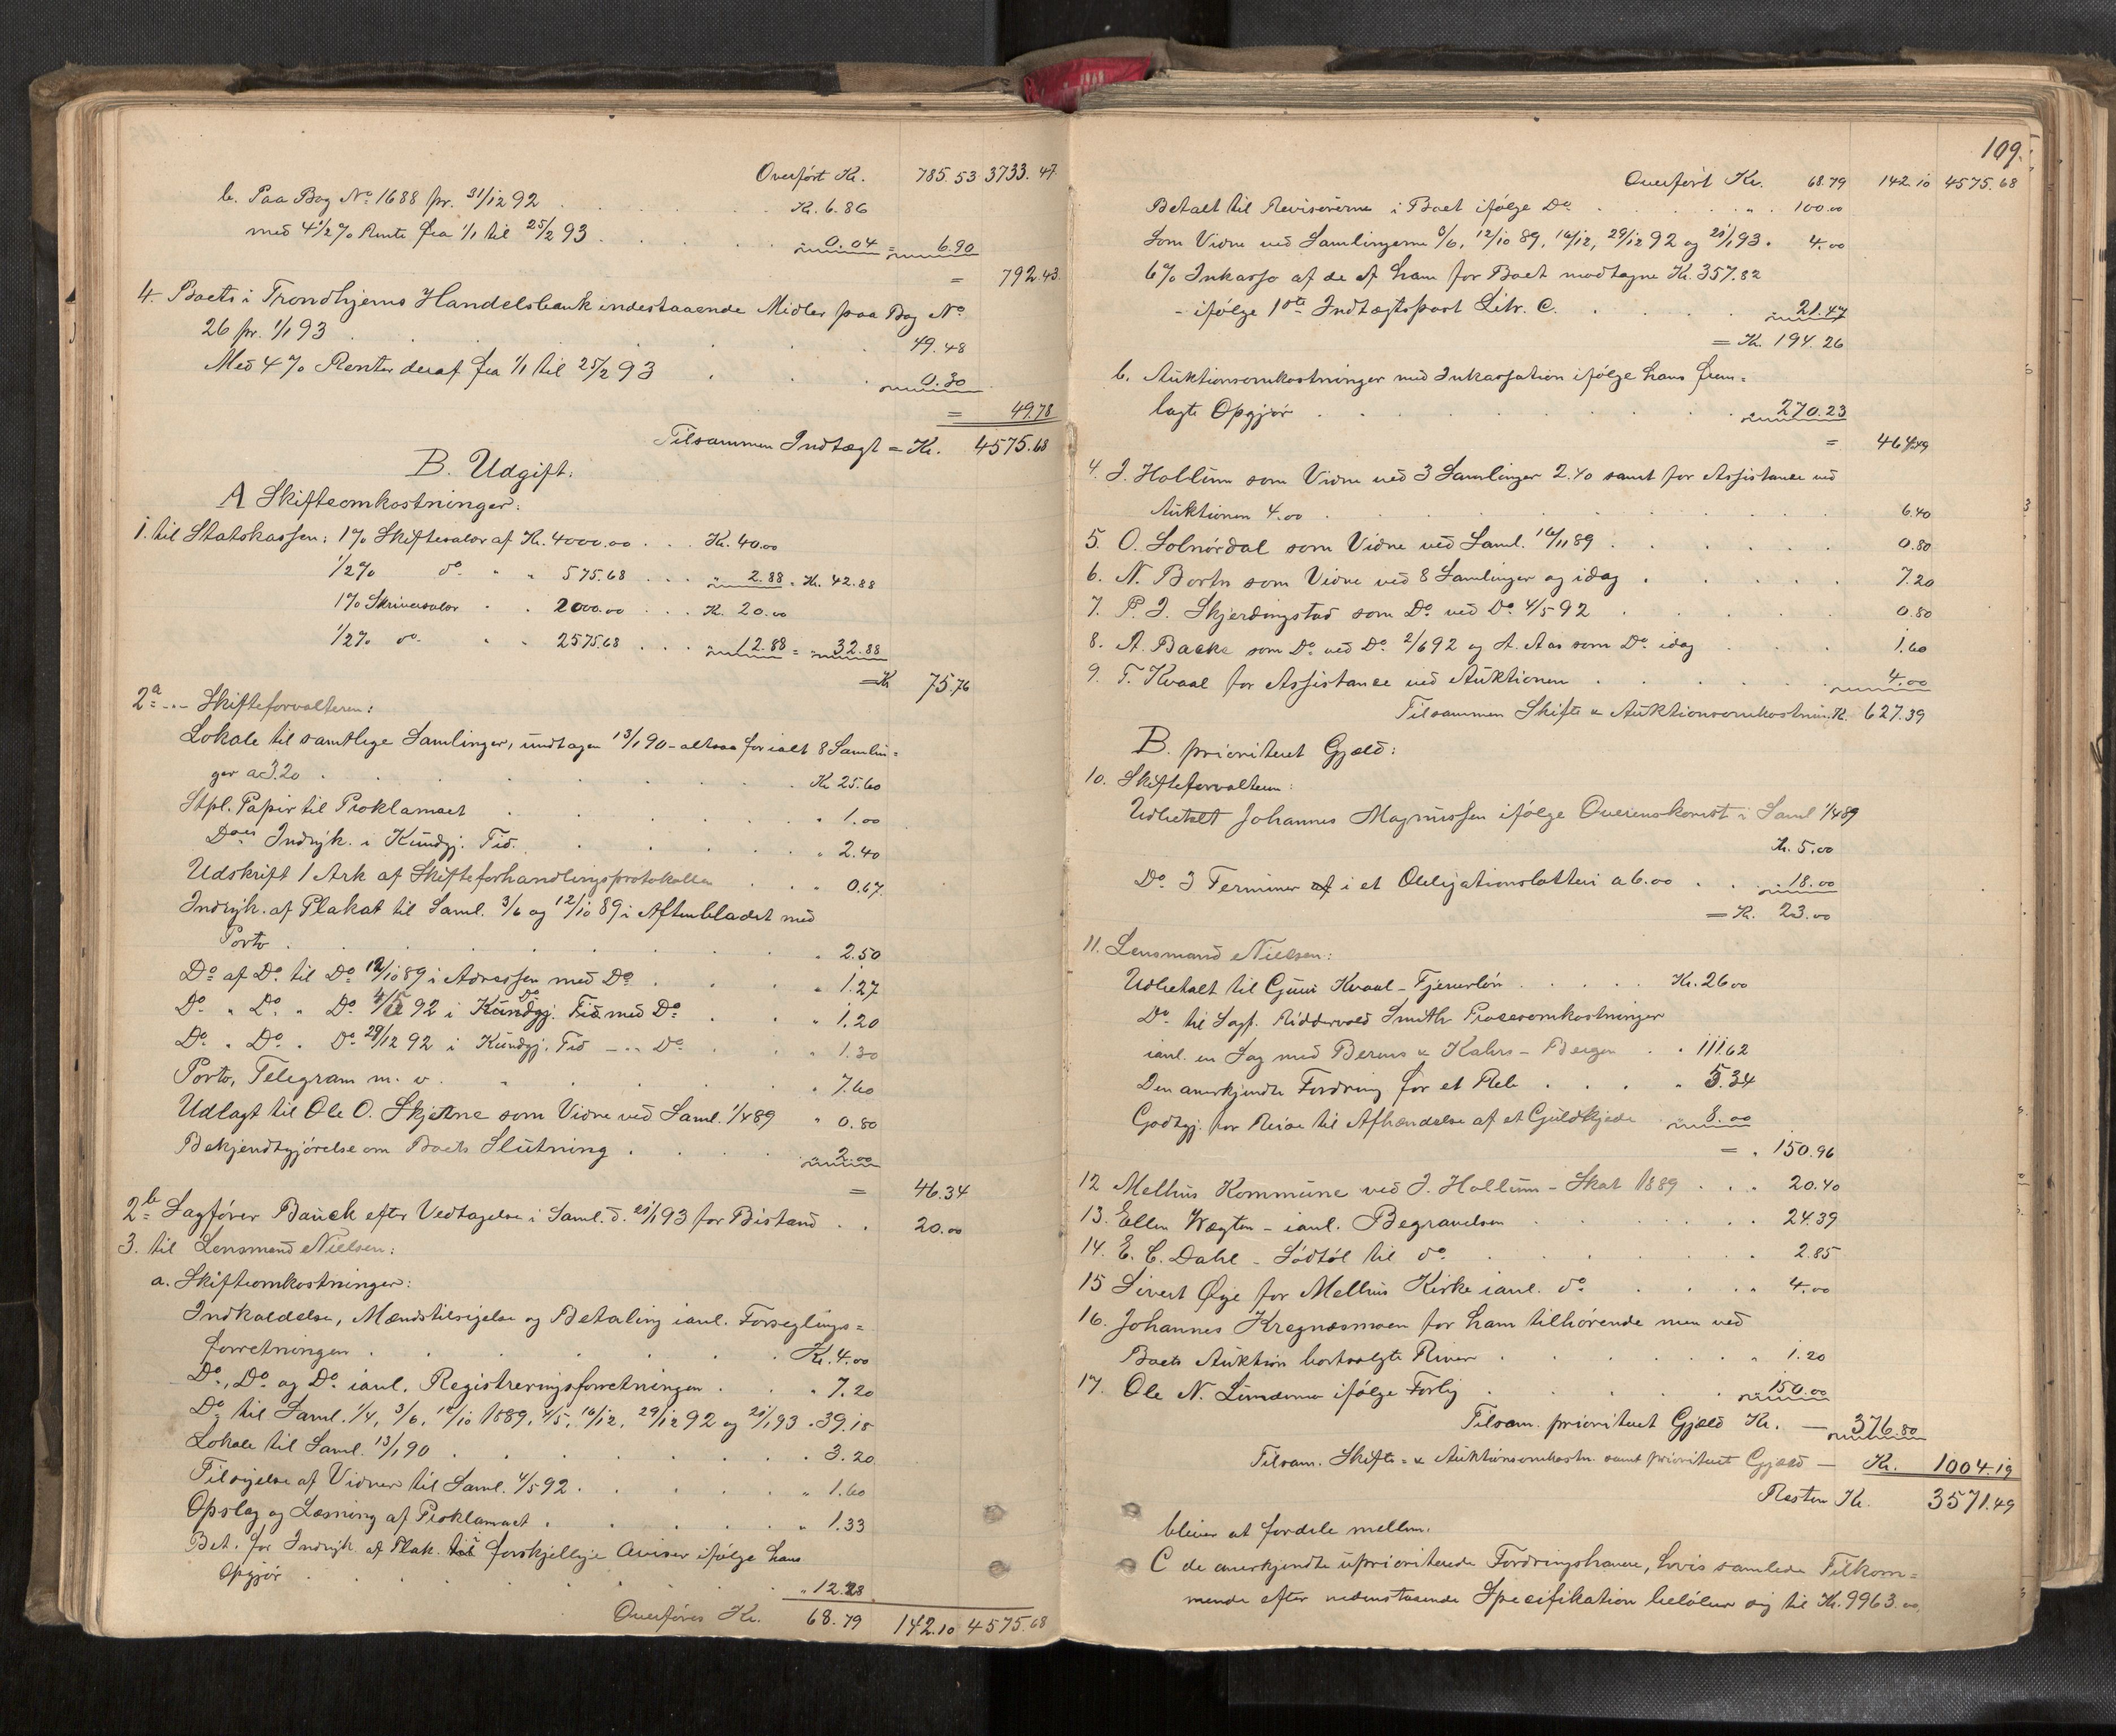 Overført Kr. 785.53 3733.47
b. Paa Bog No. 1688 pr. 31/12 92 . . . Kr. 6.86
med 4 1/2 % Rente fra 1/1 til 25/2 93 . . . " 0.04 = " 6.90
= 792.43
4. Boets i Trondhjems Handelsbank indestaaende Midler paa Bog No.
26 pr. 1/1 93 . . . 49.48
Med 4 % Renter deraf fra 1/1 til 25/2 93 . . . " 0.30
= 49.78
Tilsammen Indtægt = Kr. 4575.68
B. Udgift:
A Skifteomkostninger:
1. til Statskassen: 1% Skiftesalær af Kr. 4000.00 . . . Kr. 40.00
1/2 % do. " " 575.68 . . . " 2.88 = Kr. 42.88
1% Skriversalær " " 2000.00 . . . Kr. 20.00
1/2 % do. " " 2575.68 . . . " 12.88 = " 32.88
= Kr. 75.76
2a - " - Skifteforvalteren:
Lokale til samtlige Samlinger, undtagen 13/1 90 - altsaa for ialt 8 Samlin=
ger a 3.20 . . . Kr. 25.60
Stpl. Papir til Proklamaet . . . " 1.00
Does Indryk. i Kundgj. Tid. . . . " 2.40
Udskrift 1 Ark af Skifteforhandlingsprotokollen . . . " 0.67
Indryk. af Plakat til Saml. 3/6 og 12/10 89 i Aftenbladet med
Porto . . . " 2.50
Do. af Do. til Do. 12/10 89 i Adressen med Do. . . . " 1.27
Do. " Do. " Do. 4/5 92 i Kundgj. Tid med Do. . . . " 1.20
Do. " Do. " Do. 29/12 92 i Kundgj. Tid - " - Do. . . . " 1.30
Porto, Telegram m. v. . . . " 7.60
Udlagt til Ole O. Skjetne som Vidne ved Saml. 1/4 89 " 0.80
Bekjendtgjørelse om Boets Slutning . . . " 2.00
= 46.34
2b Sagfører Bauck efter Vedtagelse i Saml. d. 21/1 93 for Bistand . . 20.00
3. til Lensmand Nielsen:
a. Skifteomkostninger:
Indkaldelse, Mændstilsigelse og Betaling ianl. Forseglings=
forretningen . . . Kr. 4.00
Do., Do. og Do. ianl. Registreringsforretningen . . . " 7.20
Do. til Saml. 1/4, 3/6, 12/10 1889, 4/5, 16/12, 29/12 92 og 21/1 93 " 39.18
Lokale til Saml. 13/1 90 . . . " 3.20
Tilsigelse af Vidner til Saml. 4/5 92 . . . " 1.60
Opslag og Læsning af Proklamaet . . . " 1.33
Bet. for Indryk. af Plak. i forskjellige Aviser ifølge hans
Opgjør . . . " 12.28
Overføres Kr. 68.79 142.10 4575.68
109.
Overført Kr. 68.79 142.10 4575.68
Betalt til Revisorerne i Boet ifølge Do. . . . " 100.00
Som Vidne ved Samlingerne 3/6, 12/10 89, 16/12, 29/12 92 og 21/1 93 . 4.00
6% Inkasso af de af ham for Boet modtagne Kr. 357.82
- ifølge 1ste Indtægtspost Litr. C. . . . " 21.47
= Kr. 194.26
b. Auktionsomkostninger med Inkassation ifølge hans frem=
lagte Opgjør . . . " 270.23
= 464.49
4. J. Hollum som Vidne ved 3 Samlinger 2.40 samt for Assistance ved
Auktionen 4.00 . . . 6.40
5. O. Solnørdal som Vidne ved Saml. 16/11 89 . . . 0.80
6. N. Borten som Vidne ved 8 Samlinger og idag . . . 7.20
7. P. J. Skjerdingstad som Do. ved Do. 4/5 92 . . . 0.80
8. A. Backe som Do. ved Do. 2/6 92 og A. Aas som Do. idag . . . 1.60
9. T. Kvaal for Assistance ved Auktionen . . . " 4.00
Tilsammen Skifte & Auktionsomkostnin. K. 627.39
B. prioriteret Gjæld:
10. Skifteforvalteren:
Udbetalt Johannes Magnussen ifølge Overenskomst i Saml 1/4 89
Kr. 5.00
Do. 3 Terminer i et Obligationslotteri a 6.00 . . " 18.00
= K. 23.00
11. Lensmand Nielsen:
Udbetalt til Guri Kvaal - Tjenerløn . . . Kr. 26.00
Do. til Sagf. Riddervold Smith Procesomkostninger
ianl. en Sag med Berens & Kahrs - Bergen . " 111.62
Den anerkjendte Fordring for et Reb . . . " 5.34
Godtgj. for Reise til Afhændelse af et Guldkjede " 8.00
= " 150.96
12 Melhus Kommune ved J. Hollum - Skat 1889 . . . 20.40
13. Ellen Vægten - ianl. Begravelsen . . . " 24.39
14. E. C. Dahl - Sødtøl til do. . . . " 2.85
15 Sivert Øye for Melhus Kirke ianl. do. . . . " 4.00
16. Johannes Kregnæsmoen for ham tilhørende men ved
Boets Auktion bortsolgte River . . . " 1.20
17. Ole N. Limdemo ifølge Forlig . . . " 150.00
Tilsam. prioriteret Gjæld Kr. — " 376.80
Tilsam. Skifte- & Auktionsomkostn. samt prioriteret Gjæld — Kr. 1004.19
Resten Kr. 3571.49
bliver at fordele mellem:
C de anerkjendte uprioriterede Fordringshavere, hvis samlede Tilkom=
mende efter nedenstaaende Specifikation beløber sig til Kr. 9963.00,